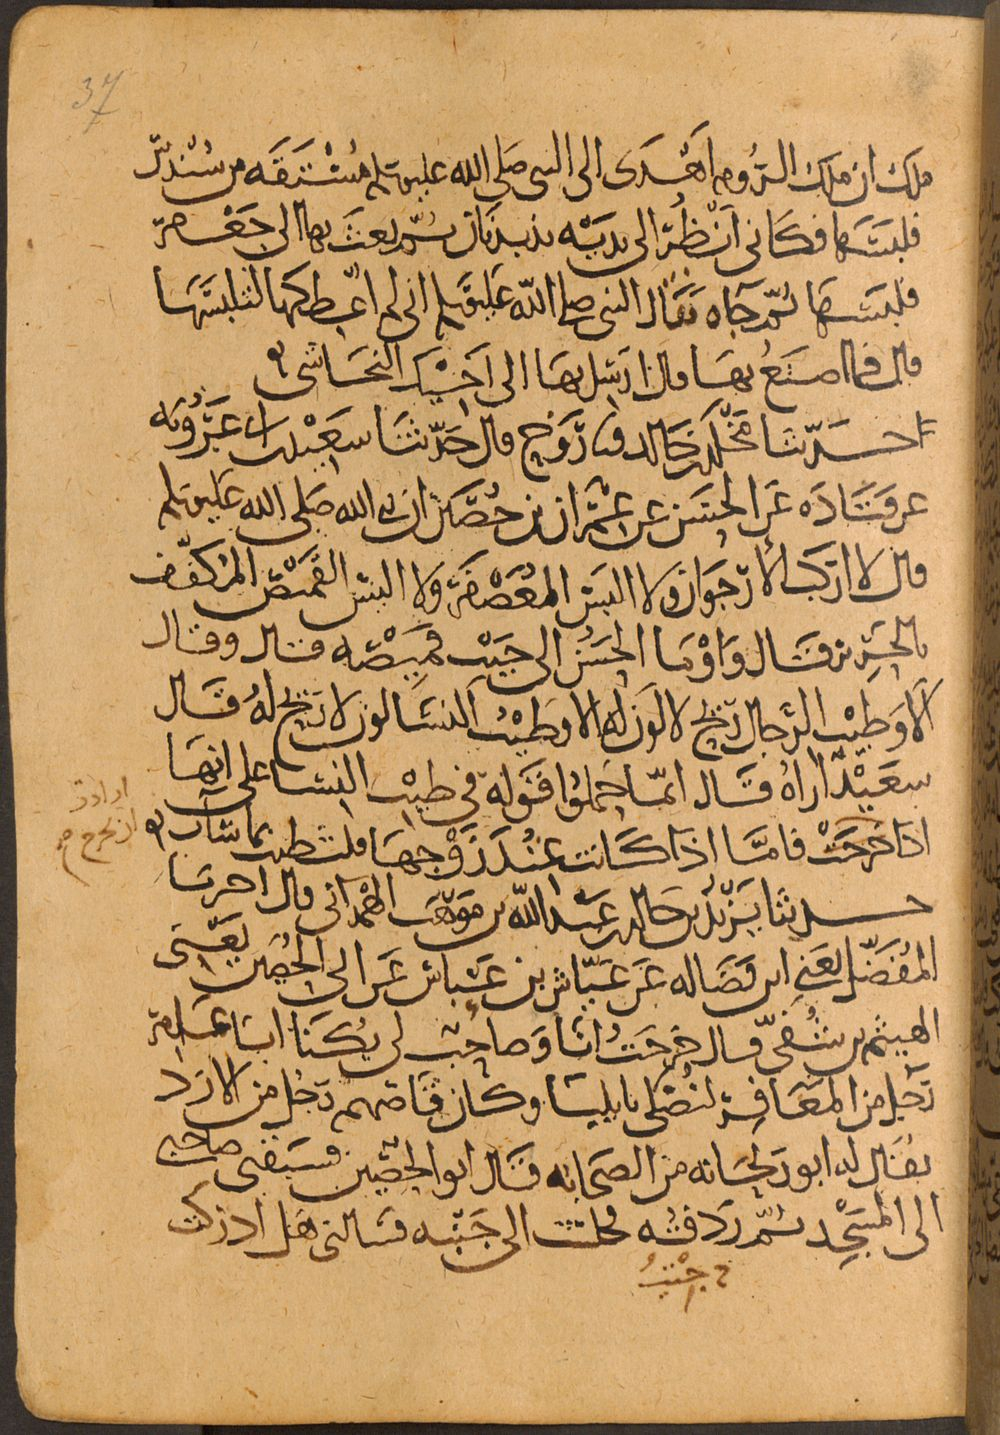 37
ملك ان ملك الروم اهدى الى النبى صلى الله عليه وسلم مستقه من سندس
فلبسها فكانى انظر الى يديه تذبذبان ثم بعث بها الى جعفر
فلبسها ثم جاه فقال النبى صلى الله عليه وسلم انى لم اعطكها لتلبسها
قال فما اصنع بها قال ارسل بها الى اخيك النجاشى
حدثنا مخلد بن خالد قثنا روح قال حدثنا سعيد بن ابى عروبه
عن قتاده عن الحسن عن عمران بن حصين ان نبى الله صلى الله عليه وسلم
قال لا اركب الارجوان ولا البس المعصفر ولا البس القميص المكفف
بالحرير قال واوما الحسن الى جيب قميصه قال وقال
الا وطيب الرجال ريح لا لون له الا وطيب النسا لون لا ريح له قال
سعيد اراه قال انما حملوا قوله فى طيب النسا على انها
اذا خرجت فاما اذا كانت عند زوجها فلتطيب بما شات
اذا ارادت ان تخرج
حدثنا يزيد بن خالد بن عبد الله بن موهب الهمدانى قال اخبرنا
المفضل يعنى ابن فضاله عن عياش بن عباس عن ابى الحصين يعنى
الهيثم بن شفى قال خرجت انا وصاحب لى يكنا ابا عامر
رجل من المعافر لنصلى بايليا وكان قاصهم رجل من الازد
يقال له ابو ريحانه من الصحابه قال ابو الحصين فسبقنى صاحبى
الى المسجد ثم ردفته فجلست الى جنبه فسالنى هل ادركت
جنب